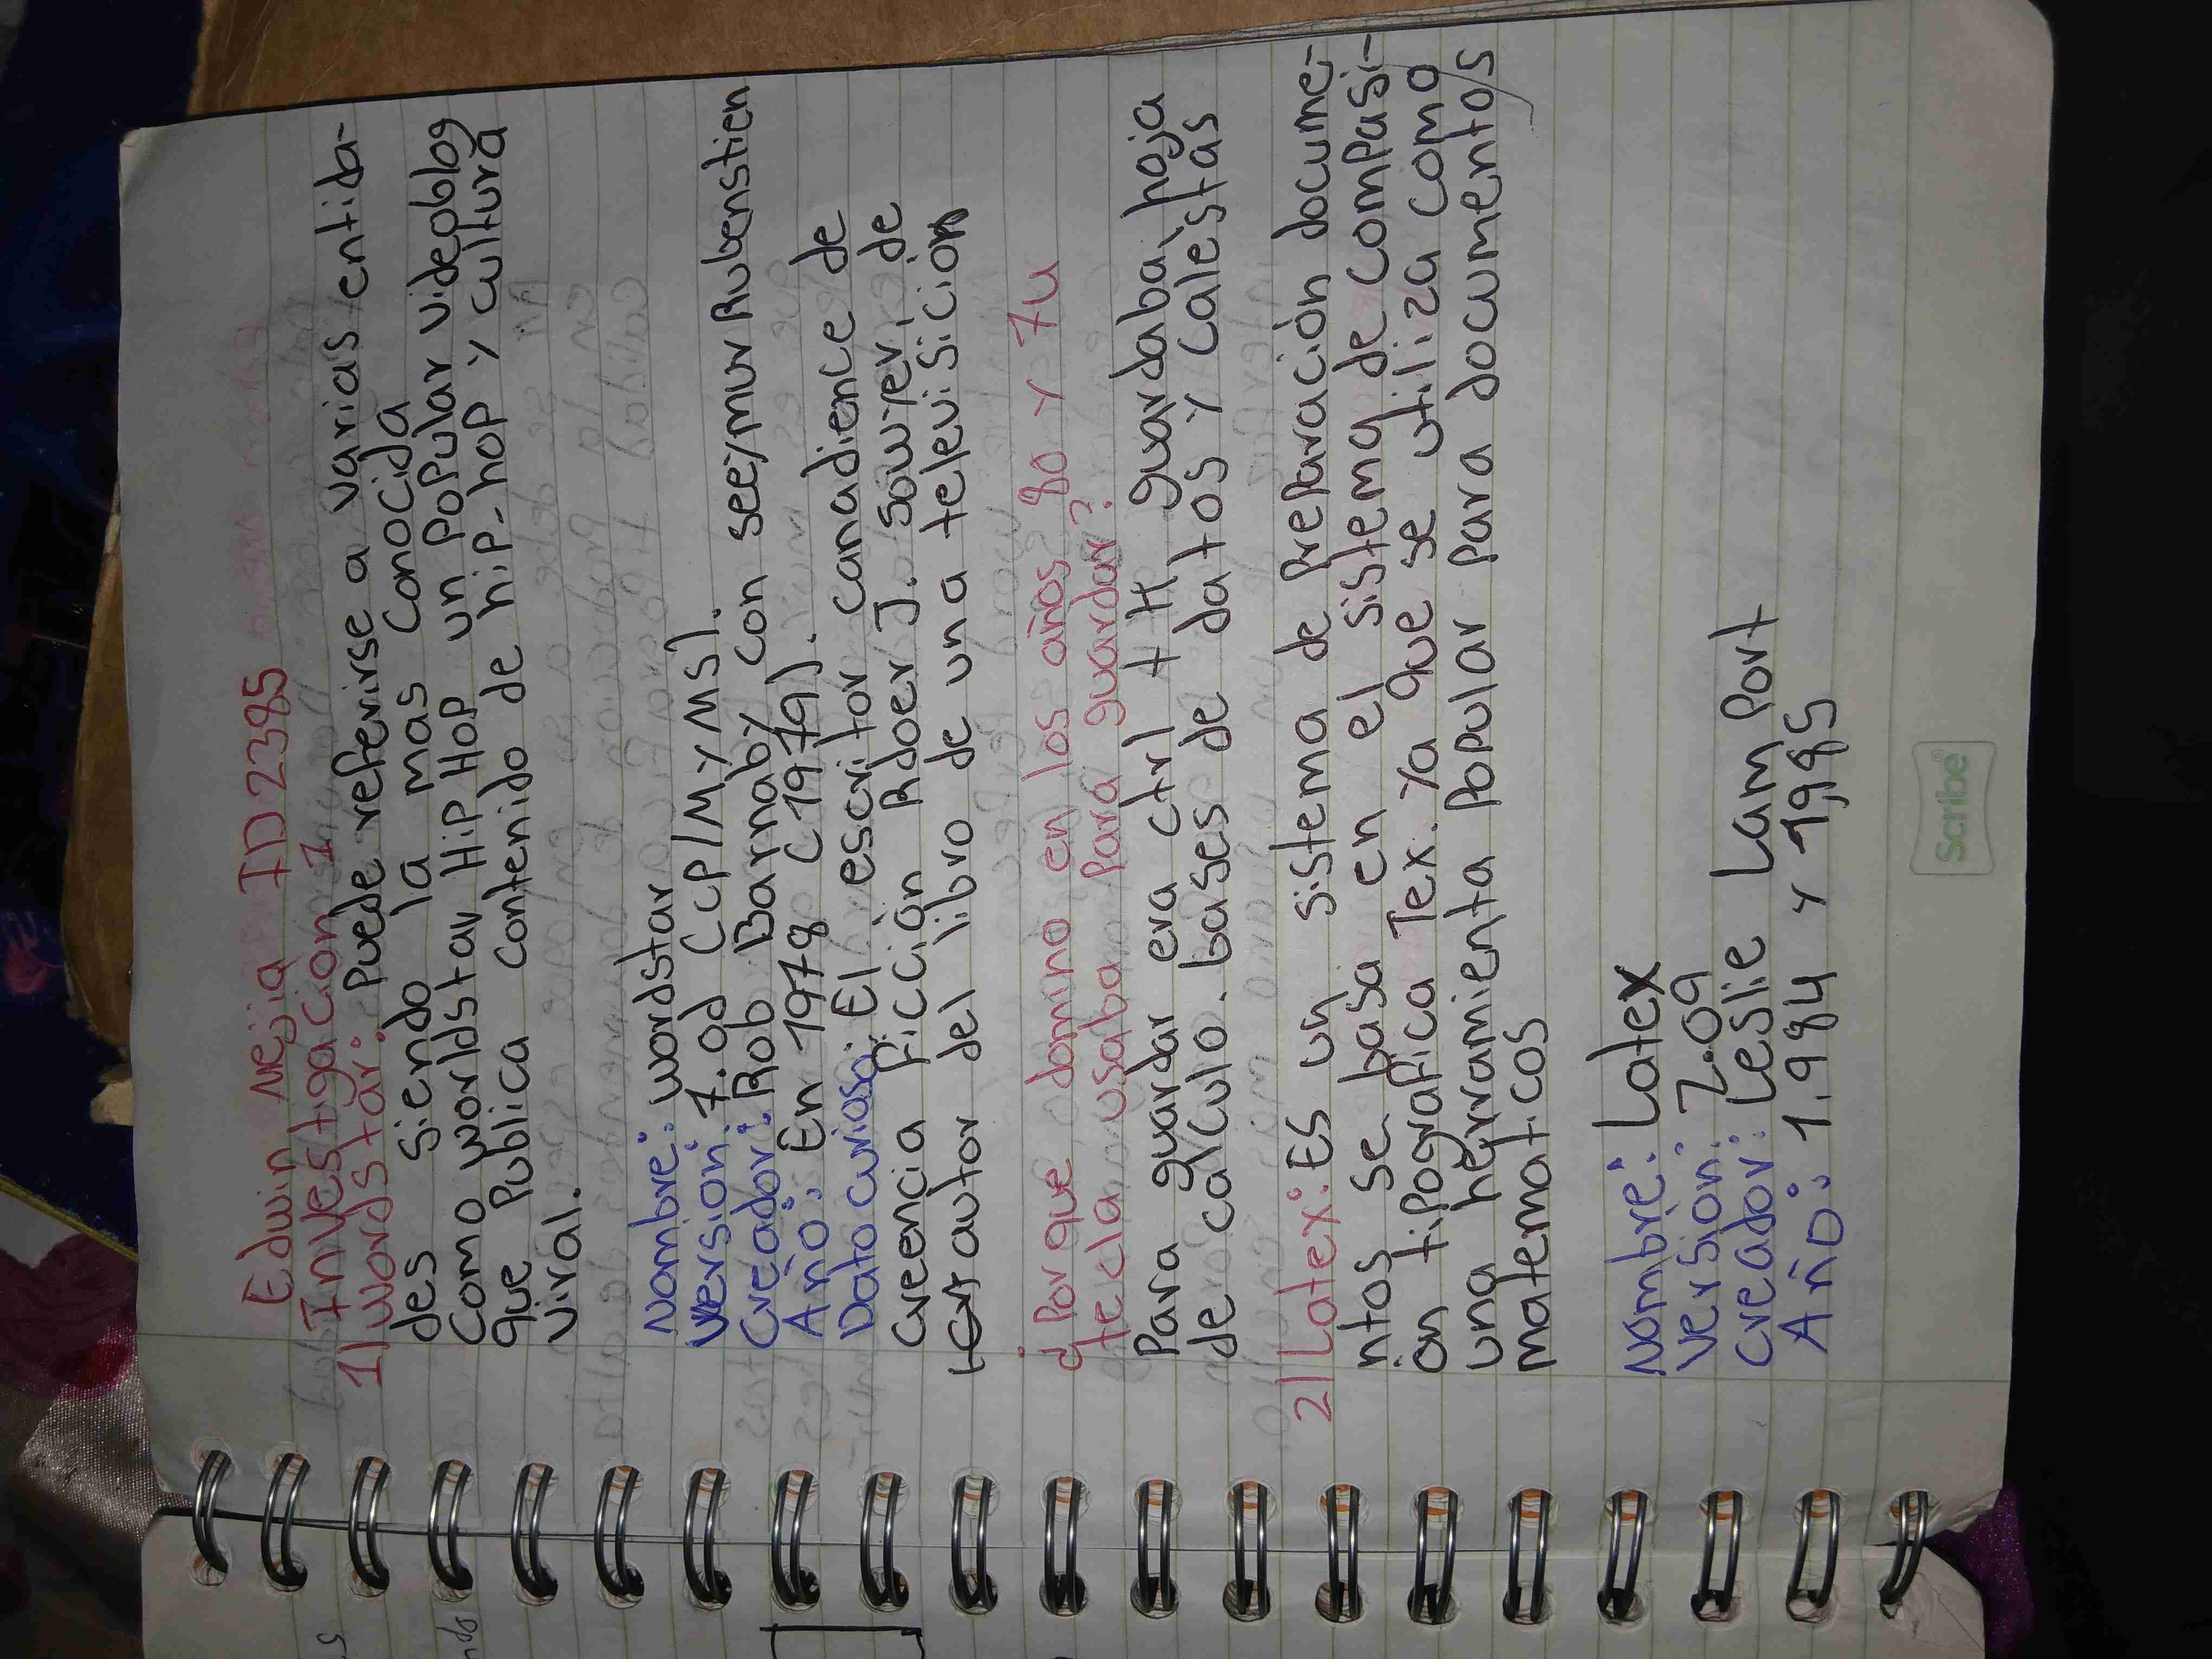 Edwin Mejia ID2385
Investigacion 1
1) Wordstar: Puede referirse a varias entida-
des siendo la mas conocida
como worldstar Hip Hop un popular videoblog
que publica contenido de hip-hop y cultura
viral.
Nombre: wordstar
Version: 7.od (cp/M y MS).
Creador: Rob Barnaby con seeymur Rubenstien
Año: En 1978 (1979).
Dato curioso: El escritor canadience de
creencia ficción Rdoer J. sowyer, de
autor del libro de una televisición
¿Por que domino en los años 80 y 7u
tecla usaba para guardar?
Para guardar era ctrl + H guardaba, hoja
de calculo. bases de datos y calestas
2) Latex: Es un sistema de preparación docume-
ntos se basa en el sistema de compasi-
ón tipografica Tex. ya que se utiliza como
una herramienta popular para documentos
matematicos
Nombre: Latex
version: 2.09
creador: Leslie Lamport
Año: 1.984 y 1985
Scribe